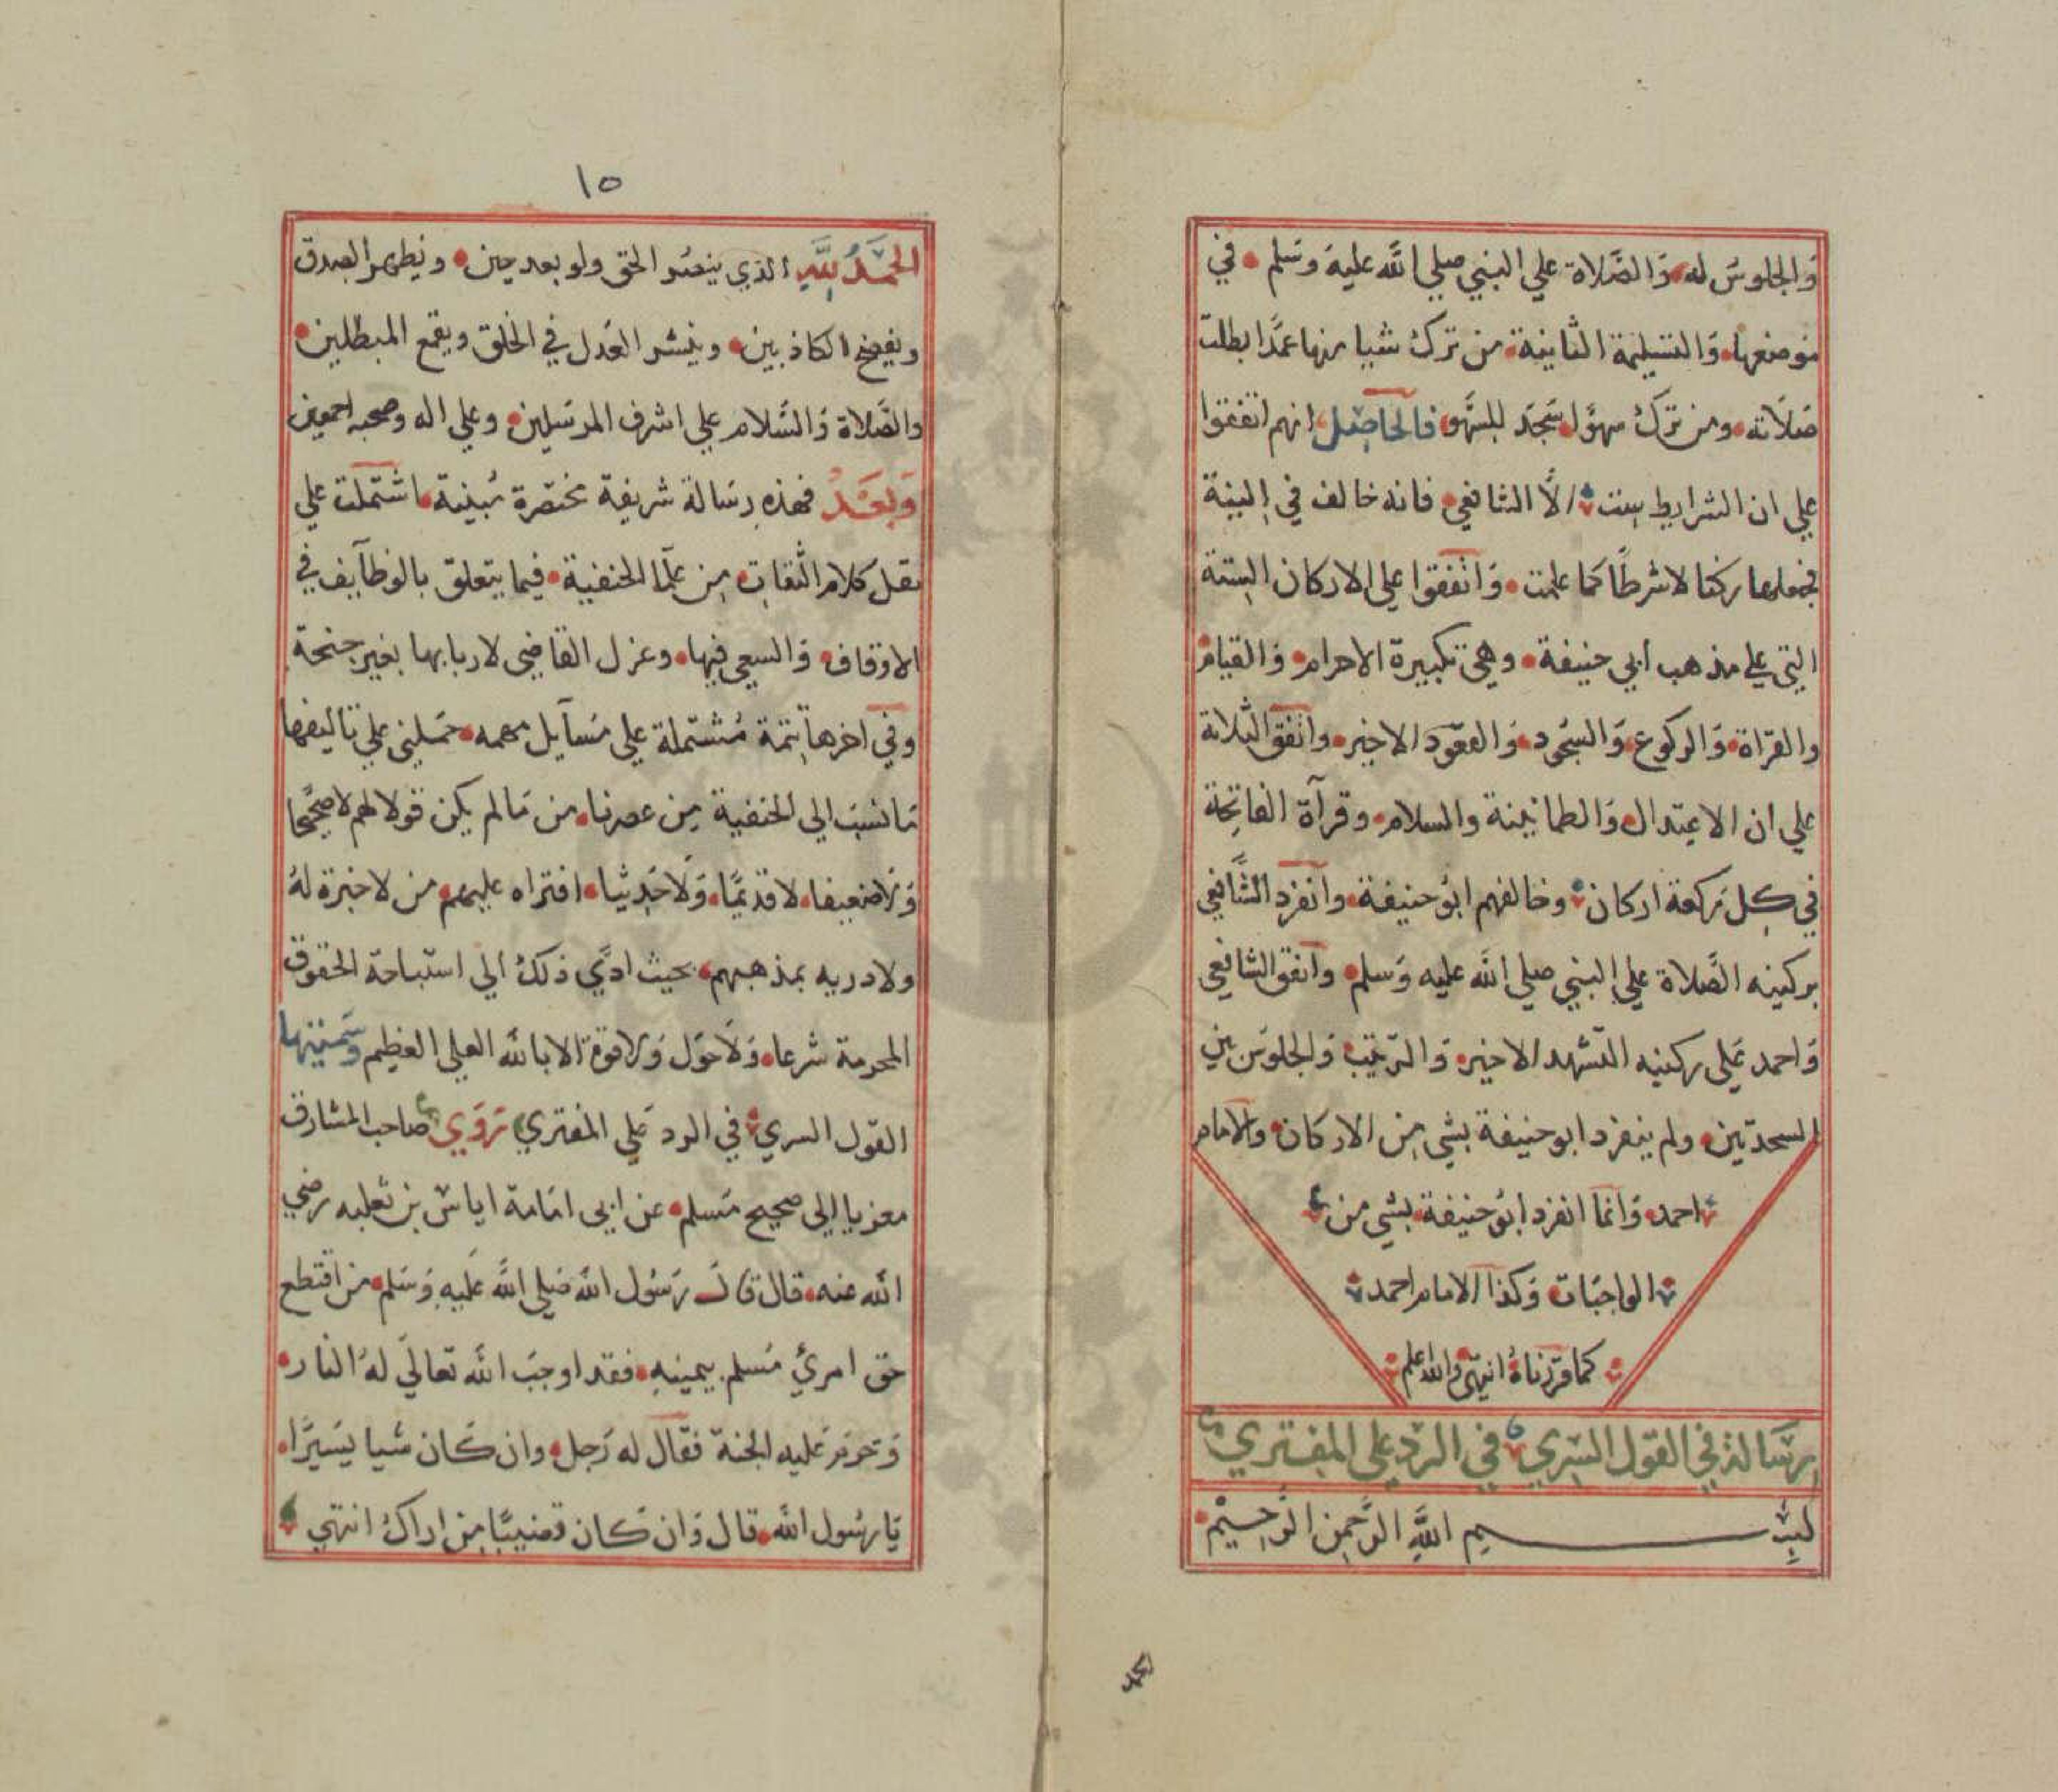 وَالجلوسُ له وَالصَّلاة علي النبي صلي الله عليه وسَلم في
موضعها وَالتسليمة الثانية من ترك شيا منها عمدًا بطلت
صَلاته ومن ترك سهوًا سَجد للسَّهو فالحَاصِل انهم اتفقوا
علي ان الشرايط ست الَّا الشافعي فانه خالف في النية
فجعلها ركنا لا شرطًا كما علمت وَاتفقوا علي الاركان الستة
التي علي مذهب ابي حنيفة وهي تكبيرة الاحرام وَالقيام
والقراة وَالركوع وَالسجُود وَالقعُود الاخير واتفق الثلاثة
علي ان الاعتدال وَالطمانينة والسلام وقرآة الفاتحة
في كل ركعة اركان وخالفهم ابو حنيفة وانفرد الشَّافعي
بركنيه الصَّلاة علي النبي صلي الله عليه وَسلم واتفق الشافعي
وَاحمد عَلي ركنيه التشهد الاخير وَالترتيب وَالجلوس بين
السجدتين ولم ينفرد ابو حنيفة بشي مِن الاركان والامام
احمد وَانما انفرد ابو حنيفة بشي من
الواجبَات وَكذا الامام احمد
كما قررناهُ انتهي والله اعلم
رسَالة في القول السِري في الرد علي المفتري
بسم اللَّهِ الرَّحمن الرَّحِيم
الحمد
١٥
الحمَدُ لِلَّهِ الذي ينصُر الحق ولو بعد حين ويظهر الصدق
ويفضح الكاذبين وينشر العَدل في الخلق ويقمع المبطلين
والصَّلاة وَالسَّلام علي اشرف المرسَلين وعلي اله وصحبه اجمعين
وَبَعَدْ فهذهِ رسَالة شريفة مختصَرة مُبينة اشتملت علي
نقل كلام الثقات مِن علمَا الحنفية فيما يتعلق بالوظآيف في
الاوقاف وَالسعي فيها وعزل القاضي لاربابها بغير جنحة
وفي اخرها تتمة مُشتملة علي مسَآيل مهمه حمَلني علي تاليفها
مَا نسبَ الي الحنفية مِن عصرنا من مَا لم يكن قولا لهم لا صَحيحًا
وَلا ضعيفا لا قديمًا وَلا حَدِيثا افتراه عليهم من لا خبرة لهُ
ولا دريه بمذهبهم بحيث ادَّي ذلك الي استباحة الحقوق
المحرمة شرعا وَلا حَول وَلا قوة الا بالله العلي العظيم وسَميتها
القول السري في الرد عَلي المفتري رَوَي صاحب المشارق
معزيا الي صحيح مُسلم عن ابي امَامة اياس بن ثعلبه رضي
الله عنه قال قالَ رسُول الله صَلي اللهُ عَليهِ وَسَلم من اقتطع
حق امريٍ مُسلم بيمينهِ فقد اوجبَ الله تعالي لهُ النار
وَحرم عَليه الجنة فقال له رَجل وان كَان شيا يسَيرًا
يَا رسُول الله قال وَان كان قضيبًا مِن اراك انتهي